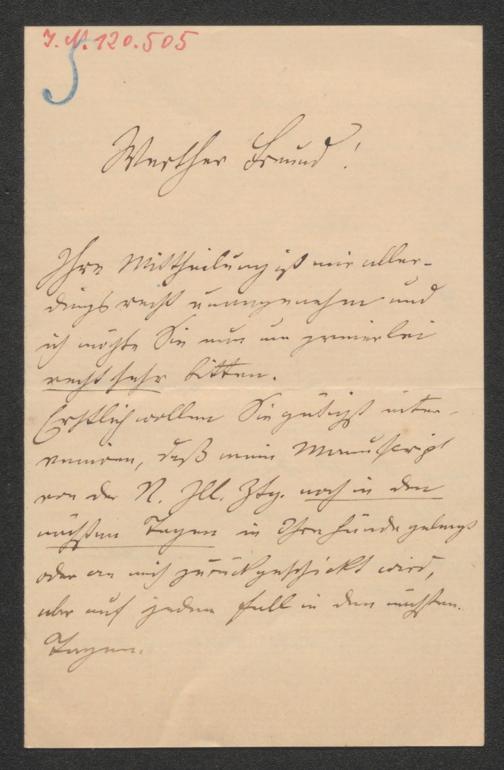 J. N. 120.505
5
Werther Freund!
Ihre Mittheilung ist mir aller-
dings recht unangenehm und
ich möchte Sie nun um zweierlei
recht sehr bitten.
Erstlich wollen Sie gütigst inter-
veniren, daß mein Manuscript
von der N. Ill. Ztg. noch in den
nächsten Tagen in Ihre Hände gelangt
oder an mich zurückgeschickt wird,
aber auf jeden Fall in den nächsten
Tagen.